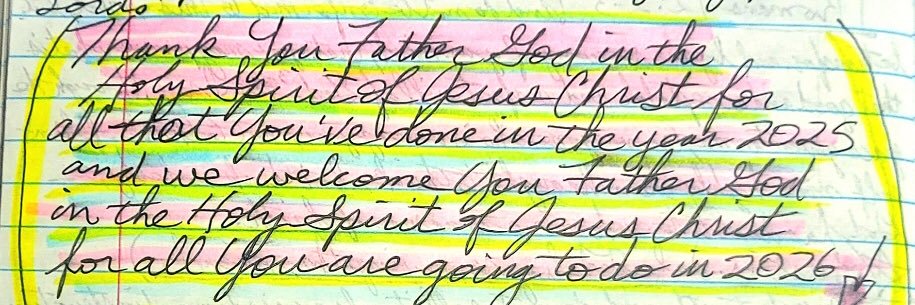 Lord.
Thank You Father God in the
Holy Spirit of Jesus Christ for
all that You've done in the year 2025
and we welcome You Father God
in the Holy Spirit of Jesus Christ
for all You are going to do in 2026